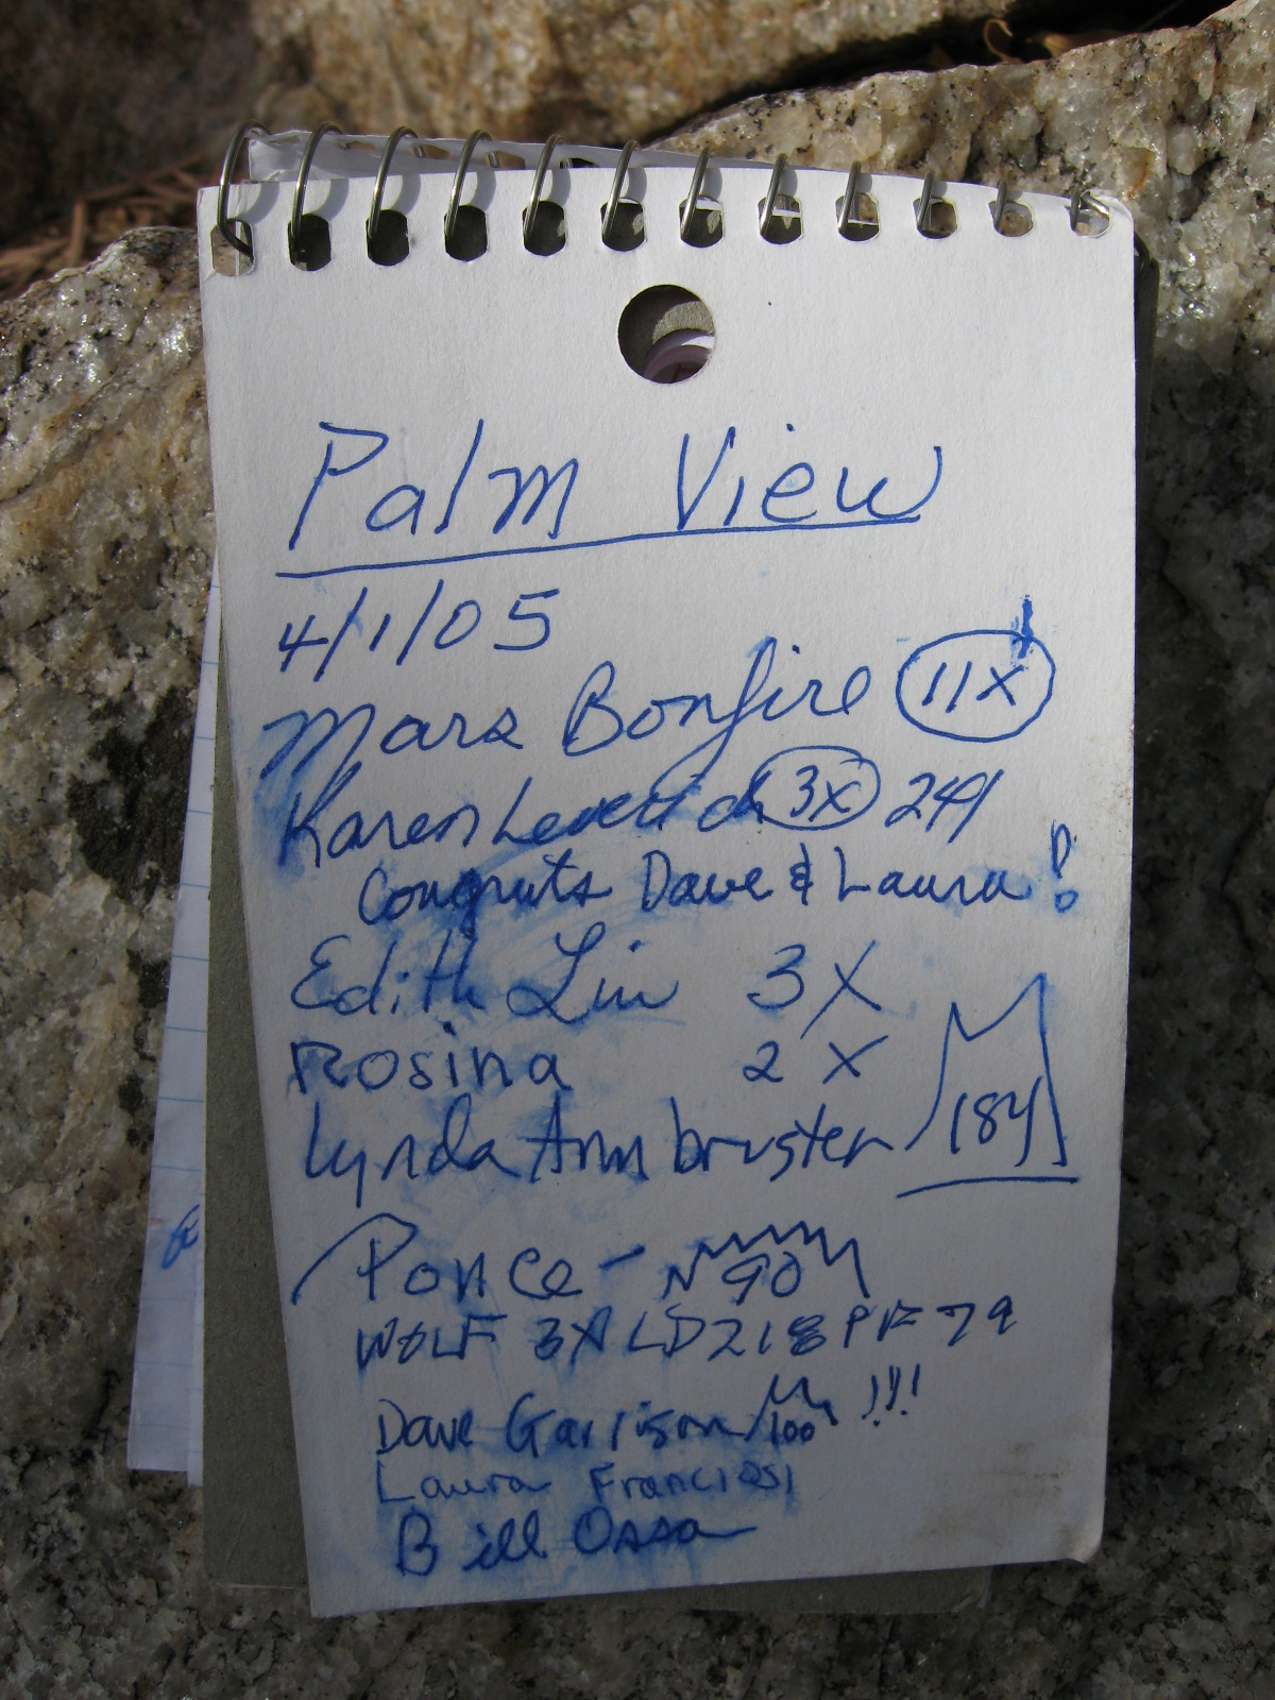 Palm View
4/1/05
Mars Bonfire 11x
Karen Leverich 3x 241
Congrats Dave & Laura!
Edith Liu 3X
Rosina 2X
Lynda Armbruster 184
Ponce - 90
WOLF 3X LD218 PK 79
Dave Garrison 100 !!!
Laura Franciosi
Bill Ossa